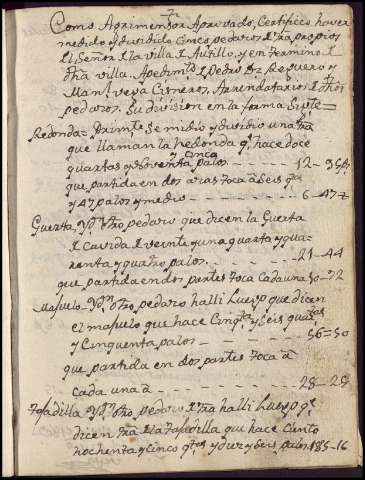 Como Agrimensor Aprovado, Certifico haver
medido y dividido cinco pedazos de trrā propios
del Señor de la villa de Autillo, y en termino de
dhā villa. A pedimto de Pedro Rz Reguero y
Manl. vega Cisneros, Arrendatarios de dhōs
pedazos. Su division en la forma Sigte=
Redonda= Primte Se midio y dividio una trrā
que llaman la Redonda q.e hace doce
quartas y noventa y cinco palos - - - 12 - 95
que partida en dos a cas toca à Seis qtas
y 47 palos y medio - - - - - - 6 - 47½
Guerta Ytm otro pedazo que dicen la Guerta
de Cavida de Veinte y una quarta y qua-
renta y quatro palos - - - - - - 21 - 44
que partida en dos partes toca Cada una 10 - 72
Majuelo Ytm otro pedazo halli Luego que dicen
el majuelo que hace Cinqta y Seis quartas
y Cinquenta palos - - - - - - 56=50
que partida en dos partes toca à
Cada una à - - - - - - 28 - 25
Tapadilla Ytm otro pedazo de trrā halli Luego q.e
dicen trrā de la Tapadilla que hace Ciento
hochenta y Cinco qtas y diez y Seis palos 185-16